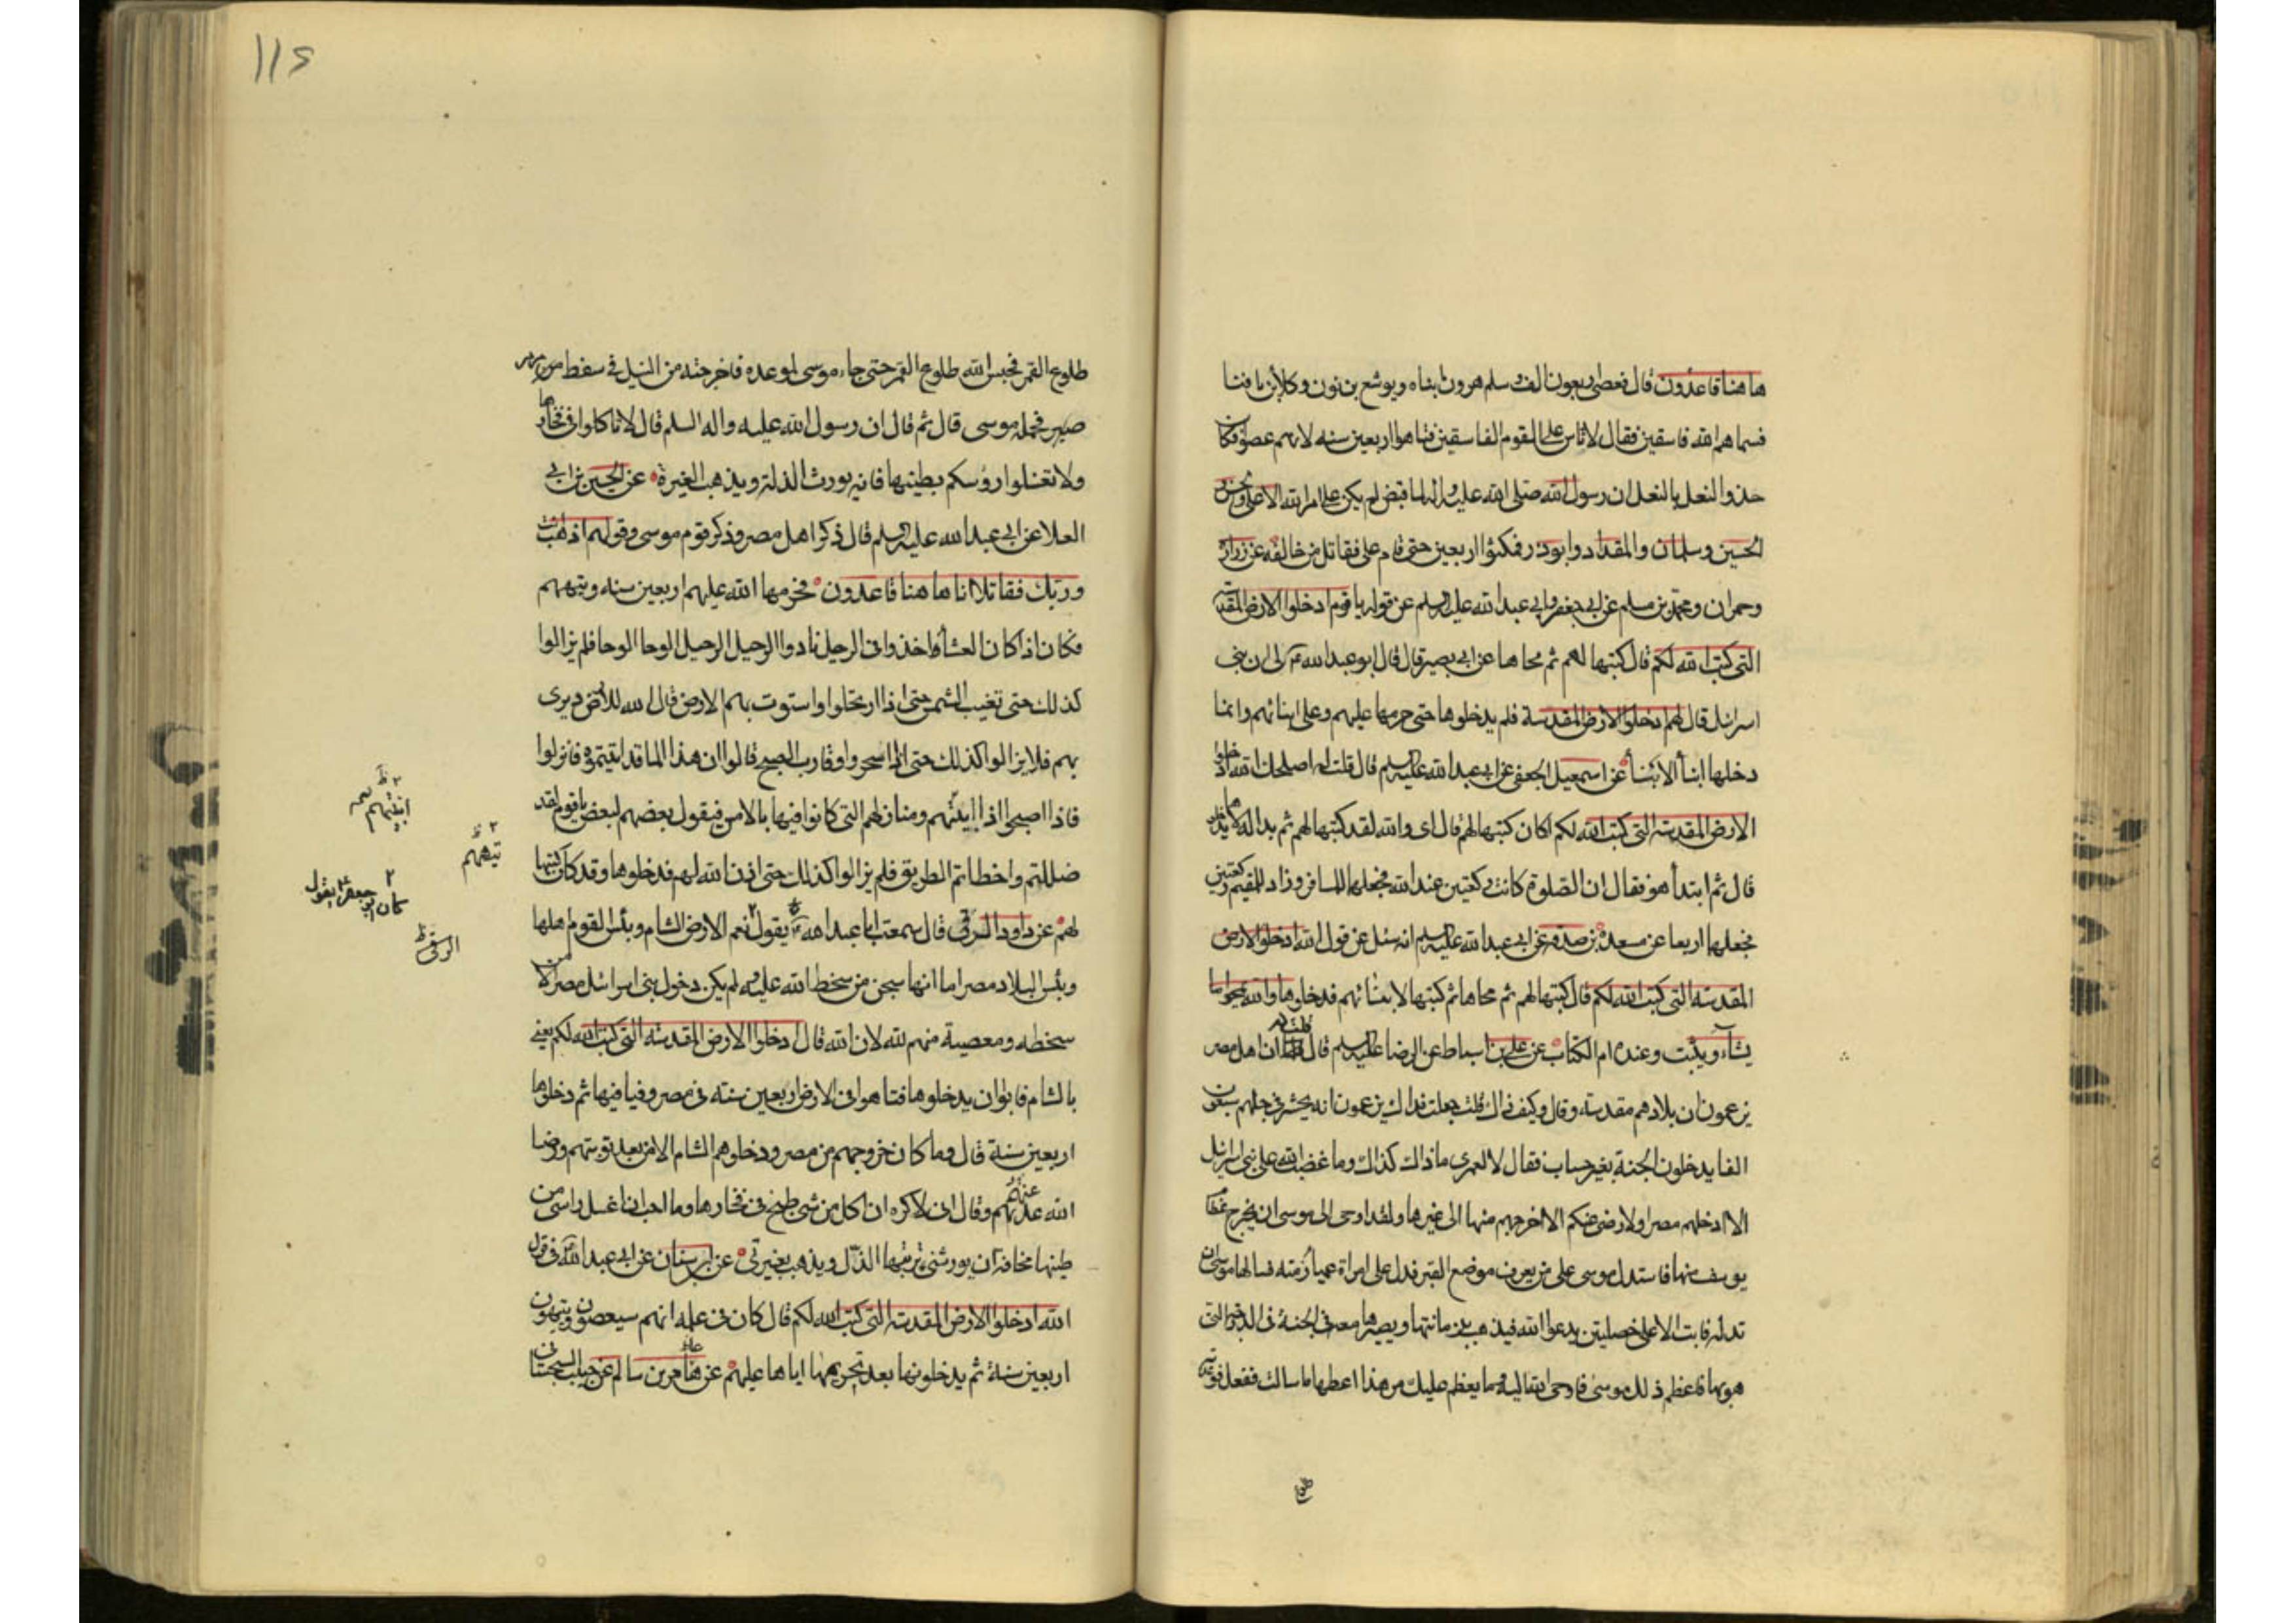 هاهنا قاعدون قال فعصى اربعون الف وسلم هرون وابناه ويوشع بن نون وكلاب بن يافنا
فسماهم الله فاسقين فقال لا تاس على القوم الفاسقين فتاهوا اربعين سنه لانهم عصوا فكان
حذو النعل بالنعل ان رسول الله صلى الله عليه واله لما قبض لم يكن على امر الله الا على والحسن و
الحسين وسلمان والمقداد وابوذر فمكثوا اربعين حتى قام على فقاتل من خالفه عن زرارة
وحمران ومحمد بن مسلم عن ابى جعفر وابى عبد الله عليه السلم عن قوله يا قوم ادخلوا الارض المقدسة
التى كتب الله لكم قال كتبها لهم ثم محاها عن ابى بصير قال قال ابو عبد الله لى ان بنى
اسرائل قال لهم ادخلوا الارض المقدسة فلم يدخلوها حتى حرمها عليهم وعلى ابنائهم وانما
دخلها ابنأ الابنأ عن اسمعيل الجعفى عن ابى عبد الله عليه السلم قال قلت له اصلحك الله ادخلوا
الارض المقدسة التى كتب الله لكم اكان كتبها لهم قال اى والله لقد كتبها لهم ثم بدا له لا يدخلوها
قال ثم ابتدأ هو فقال ان الصلوة كانت ركعتين عند الله فجعلها للمسافر وزاد للمقيم ركعتين
فجعلها اربعا عن مسعدة بن صدقه عن ابى عبد الله عليه السلم انه سئل عن قول الله ادخلوا الارض
المقدسة التى كتب الله لكم قال كتبها لهم ثم محاها ثم كتبها لابنائهم فدخلوها والله يمحوا ما
يشآء ويثبت وعنده ام الكتاب عن على بن اسباط عن الرضا عليه السلم قال قلت ان اهل مصر
يزعمون ان بلادهم مقدسة وقال وكيف ذلك قلت جعلت فداك يزعمون انه يحشر فى جبلهم سبعون
الفا يدخلون الجنة بغير حساب فقال لا لعمرى ما ذاك كذلك وما غضب الله على بنى اسرائل
الا ادخلهم مصر ولا رضى عنهم الا اخرجهم منها الى غيرها ولقد اوحى الى موسى ان يخرج عظام
يوسف منها فاستدل موسى على من يعرف موضع القبر فدل على امراة عمياء زمنه فسالها موسى ان
تدله فابت الا على خصلتين يدعوا الله فيذهب بزمانتها ويصيرها معه فى الجنة فى الدرجة التى
هو بها فاعظم ذلك موسى فاوحى الله اليه وما يعظم عليك من هذا اعطها ما سالت ففعل فوعدته
طلوع
١١٤
طلوع القمر فحبس الله طلوع القمر حتى جاء موسى لموعده فاخرجته من النيل فى سفط مرمر
فحمله موسى قال ثم قال ان رسول الله عليه واله السلم قال لا تاكلوا فى فخارها
ولا تغسلوا رؤسكم بطينها فانه يورث الذلة ويذهب الغيرة عن الحسين بن ابى
العلا عن ابى عبد الله عليه السلم قال ذكر اهل مصر وذكر قوم موسى وقولهم اذهب انت
وربك فقاتلا انا هاهنا قاعدون فحرمها الله عليهم اربعين سنه وتيههم
فكان اذا كان العشأ واخذوا فى الرحيل نادوا الرحيل الرحيل الوحا الوحا فلم يزالوا
كذلك حتى تغيب الشمس حتى اذا ارتحلوا واستوت بهم الارض قال الله للارض ديرى
بهم فلا يزالوا كذلك حتى اذا اسحروا وقارب الصبح قالوا ان هذا الما قد اتيتموه فانزلوا
فاذا اصبحوا اذا ومنازلهم التى كانوا فيها بالامس فيقول بعضهم لبعض يا قوم لقد
ضللتم واخطاتم الطريق فلم يزالوا كذلك حتى اذن الله لهم فدخلوها وقد كان كتبها
لهم عن داود الرقى قال سمعت ابا عبد الله يقول نعم الارض الشام وبئس القوم اهلها
وبئس البلاد مصر اما انها سجن من سخط الله عليه ولم يكن دخول بنى اسرائل مصر الا من
سخطه ومعصية منهم لله لان الله قال ادخلوا الارض المقدسة التى كتب الله لكم يعنى
بالشام فابوا ان يدخلوها فتاهوا فى الارض اربعين سنته فى مصر وفيافيها ثم دخلوها
اربعين سنة قال وما كان خروجهم من مصر ودخلوهم الشام الا من بعد توبتهم ورضا
الله عنهم وقال انى لاكره ان اكل من شى طبخ فى فخارها وما احب ان اغسل راسى من
طينها مخافة ان يورثنى تربتها الذل ويذهب بغيرتى عن ابن سنان عن ابى عبد الله فى قول
الله ادخلوا الارض المقدسة التى كتب الله لكم قال كان فى علمه انهم سيعصون ويتيهون
اربعين سنة ثم يدخلونها بعد تحريمها اياها عليهم عن بن سالم عن حبيب السجستانى
تيههم
كان ابو جعفر يقول
الرقى